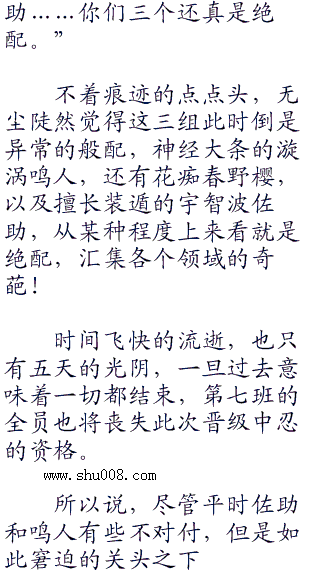 助……你们三个还真是绝
配。”
不着痕迹的点点头，无
尘陡然觉得这三组此时倒是
异常的般配，神经大条的漩
涡鸣人，还有花痴春野樱，
以及擅长装遁的宇智波佐
助，从某种程度上来看就是
绝配，汇集各个领域的奇
葩！
时间飞快的流逝，也只
有五天的光阴，一旦过去意
味着一切都结束，第七班的
全员也将丧失此次晋级中忍
的资格。
www.shu008.com
所以说，尽管平时佐助
和鸣人有些不对付，但是如
此窘迫的关头之下